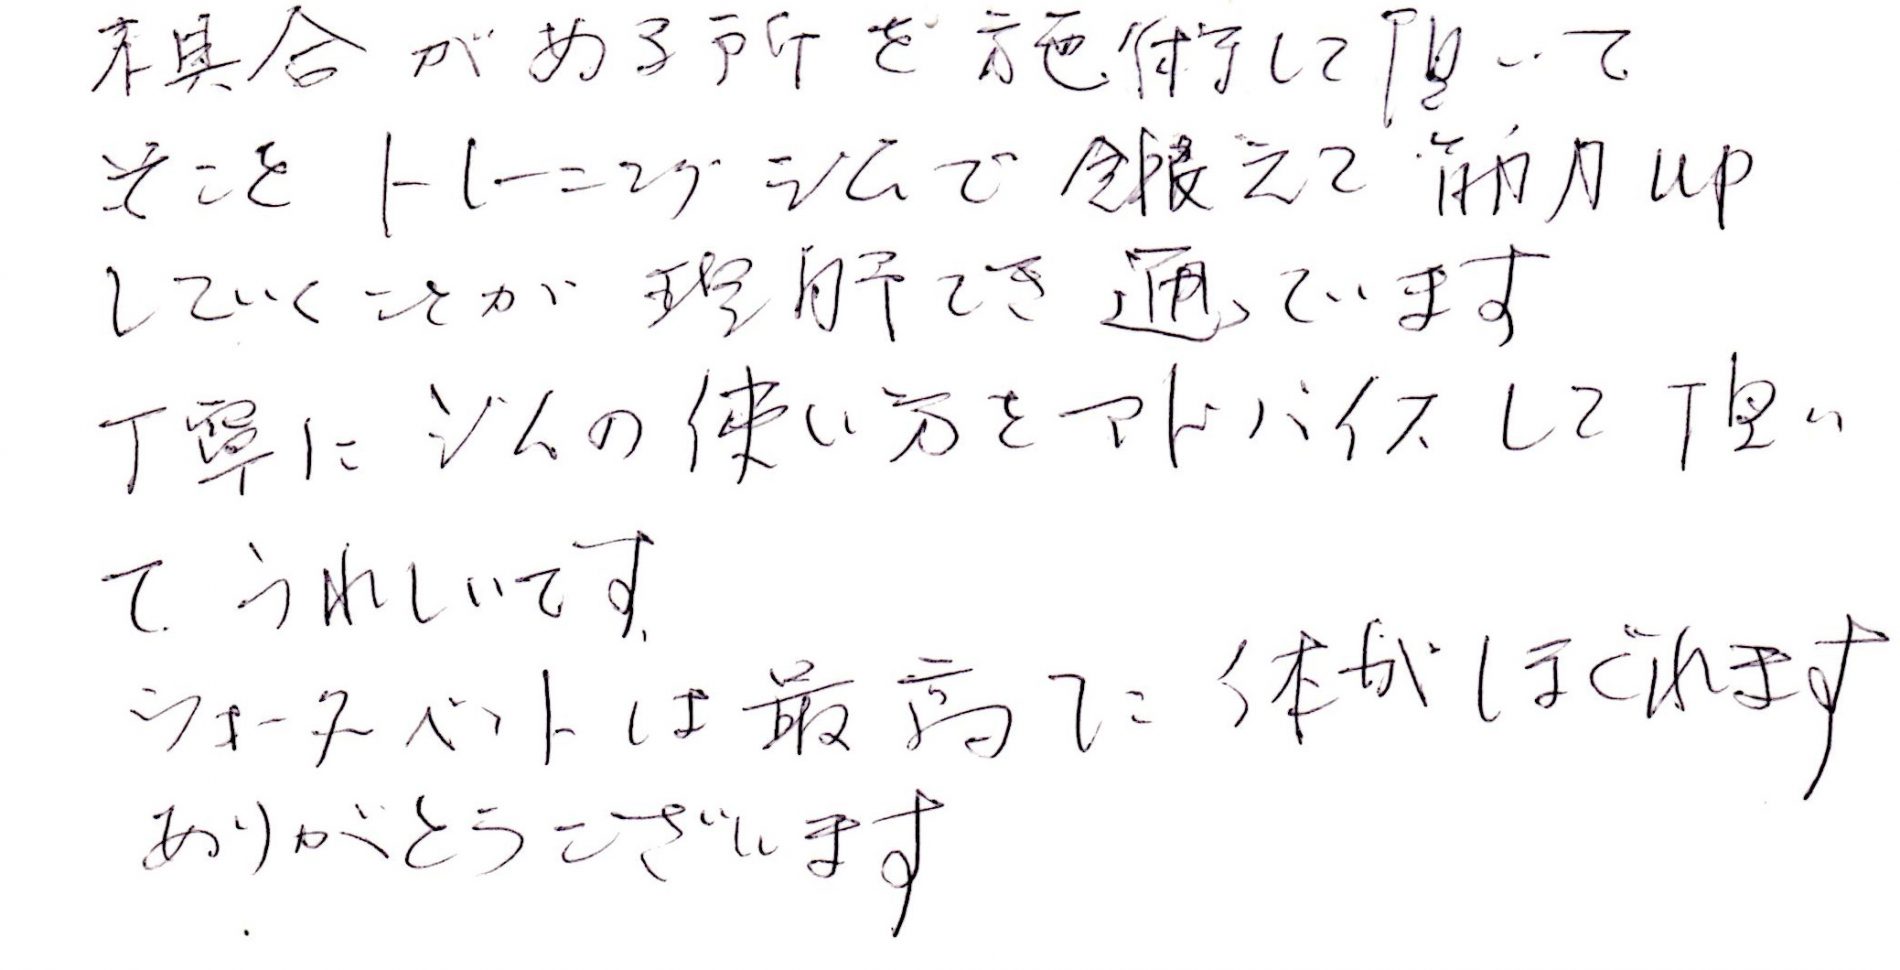 不具合がある所を施術して頂いて
そこをトレーニングジムで鍛えて筋力up
していくことが理解でき通っています
丁寧にジムの使い方をアドバイスして頂い
てうれしいです
ウォーターベットは最高に体がほぐれます
ありがとうございます